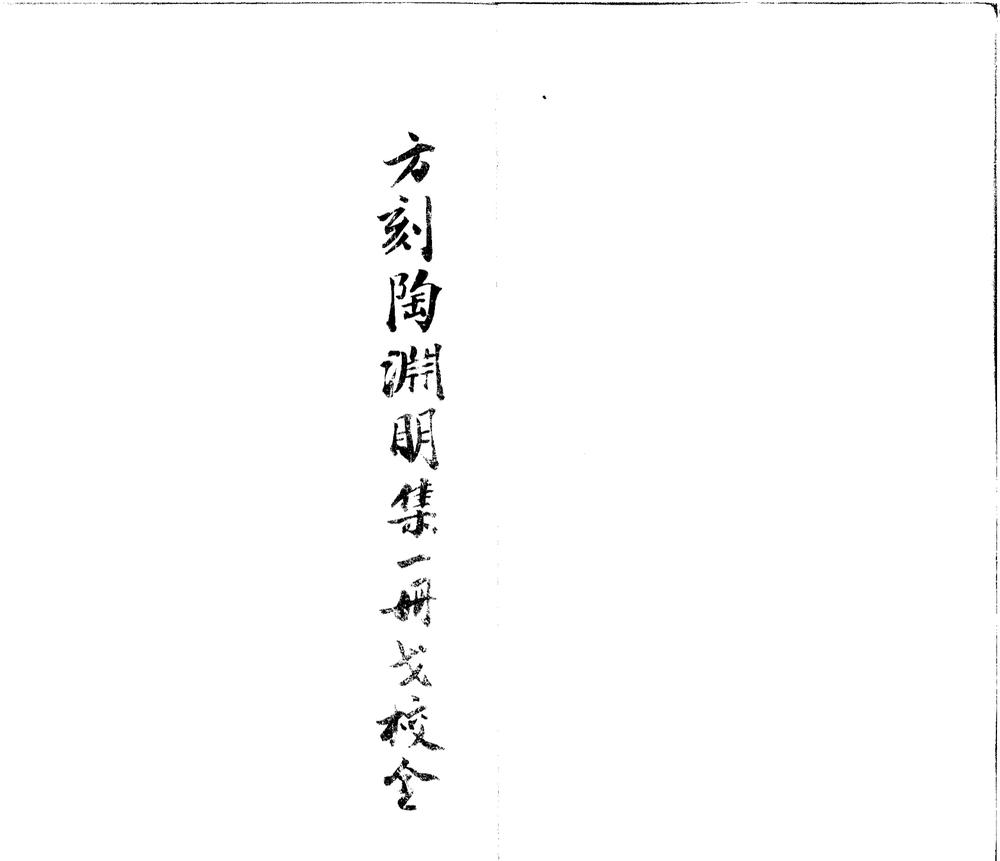 方刻陶淵明集一冊戈校全